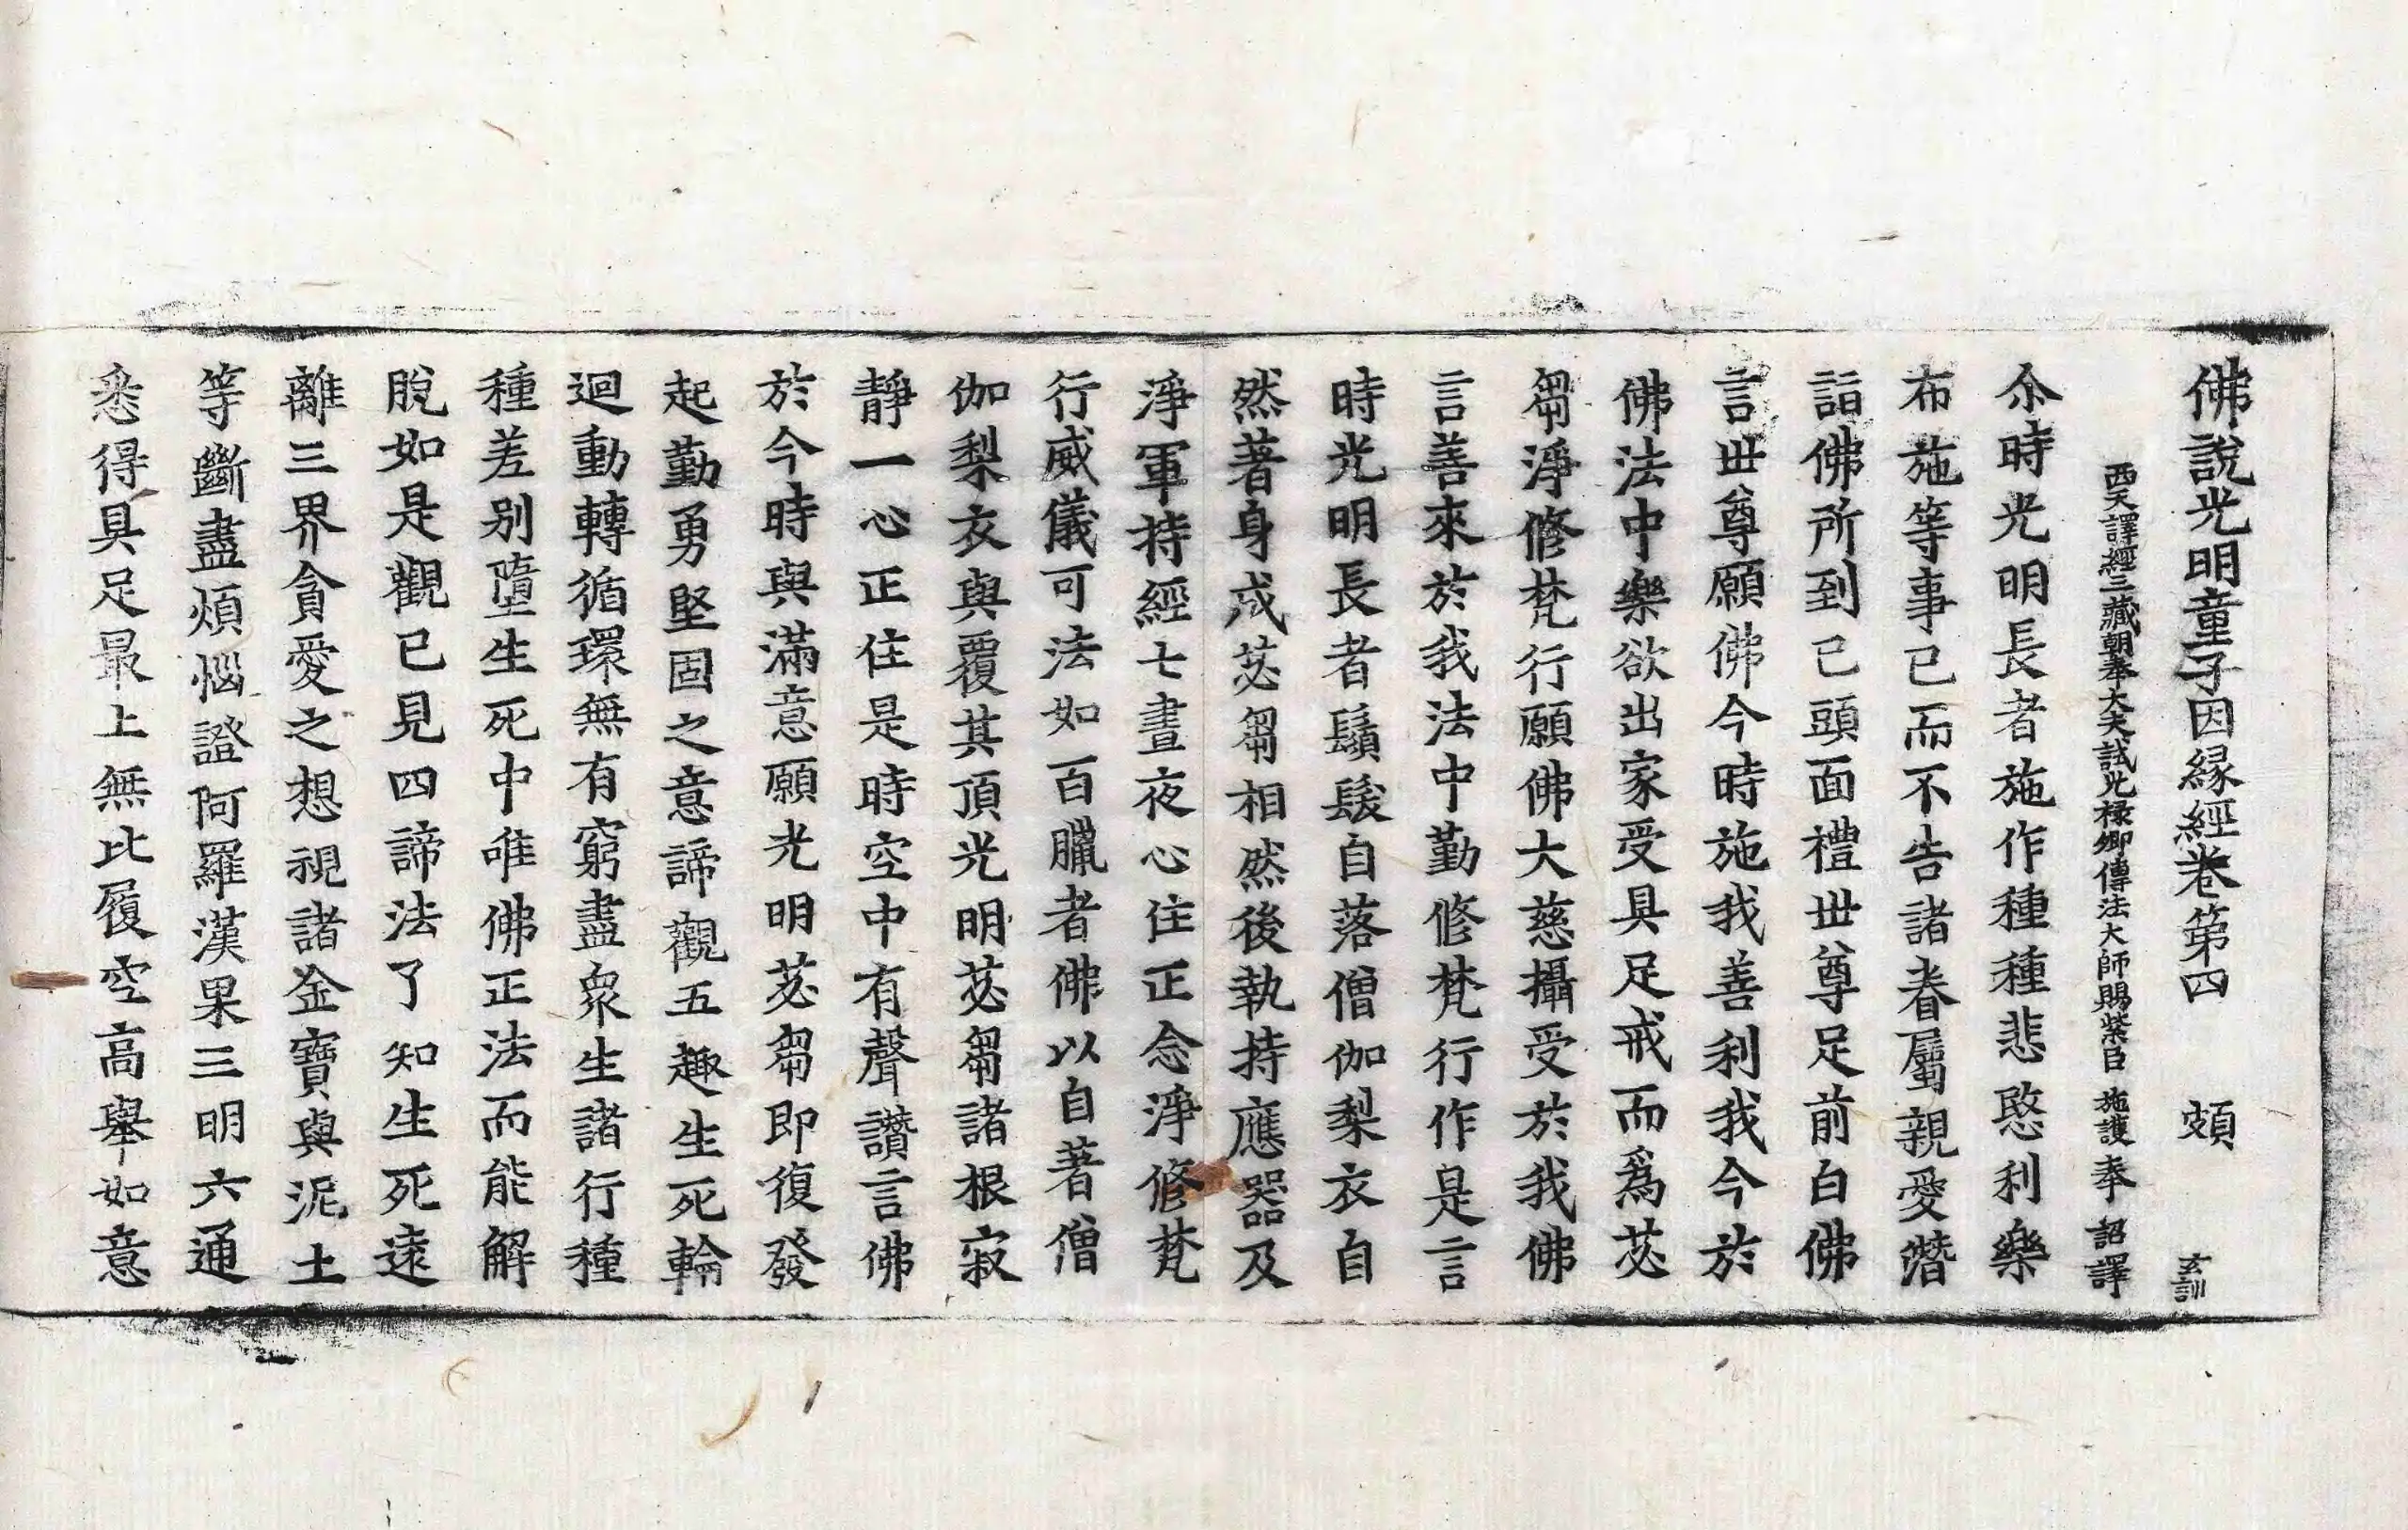 佛說光明童子因緣經卷第四 頗 玄訓
西天譯經三藏朝奉大夫試光祿卿傳法大師賜紫臣施護奉 詔譯
尒時光明長者施作種種悲愍利樂
布施等事已而不告諸眷屬親愛潛
詣佛所到已頭面禮世尊足前白佛
言世尊願佛今時施我善利我今於
佛法中樂欲出家受具足戒而爲苾
芻淨修梵行願佛大慈攝受於我佛
言善來於我法中勤修梵行作是言
時光明長者鬚髮自落僧伽梨衣自
然著身成苾芻相然後執持應器及
淨軍持經七晝夜心住正念淨修梵
行威儀可法如百臘者佛以自著僧
伽梨衣與覆其頂光明苾芻諸根寂
靜一心正住是時空中有聲讚言佛
於今時與滿意願光明苾芻即復發
起勤勇堅固之意諦觀五趣生死輪
迴動轉循環無有窮盡衆生諸行種
種差别墮生死中唯佛正法而能解
脫如是觀已見四諦法了知生死遠
離三界貪愛之想視諸金寶與泥土
等斷盡煩惱證阿羅漢果三明六通
悉得具足最上無比履空高舉如意